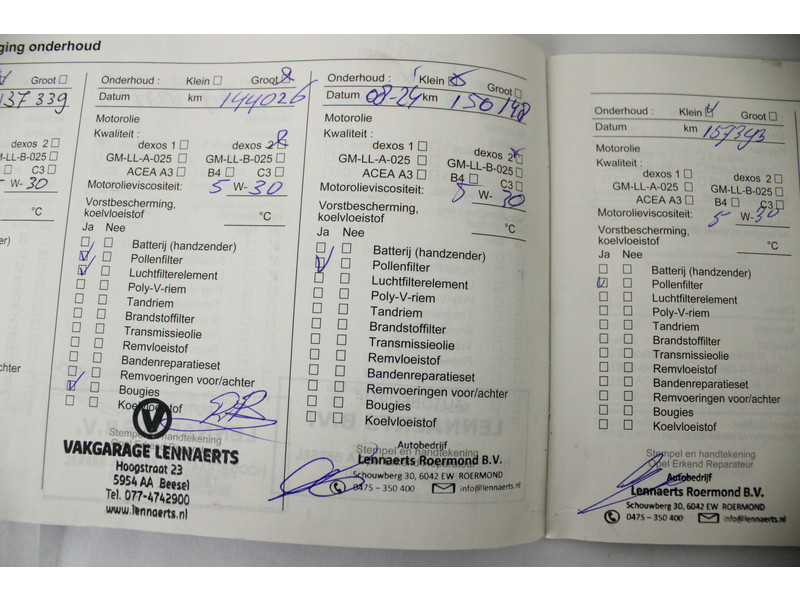 ging onderhoud
Groot
137 339
dexos 2
GM-LL-B-025
C3
W-30
°C
Onderhoud : Klein Groot
Datum km 144026
Motorolie
Kwaliteit :
dexos 1 dexos 2
GM-LL-A-025 GM-LL-B-025
ACEA A3 B4 C3
Motorolieviscositeit: 5 W-30
Vorstbescherming,
koelvloeistof °C
Ja Nee
Batterij (handzender)
Pollenfilter
Luchtfilterelement
Poly-V-riem
Tandriem
Brandstoffilter
Transmissieolie
Remvloeistof
Bandenreparatieset
Remvoeringen voor/achter
Bougies
Koelvloeistof
Stempel en handtekening
VAKGARAGE LENNAERTS
Hoogstraat 23
5954 AA Beesel
Tel. 077-4742900
www.lennaerts.nl
Onderhoud : Klein Groot
Datum 08-24 km 150148
Motorolie
Kwaliteit :
dexos 1 dexos 2
GM-LL-A-025 GM-LL-B-025
ACEA A3 B4 C3
Motorolieviscositeit: 5 W-30
Vorstbescherming,
koelvloeistof °C
Ja Nee
Batterij (handzender)
Pollenfilter
Luchtfilterelement
Poly-V-riem
Tandriem
Brandstoffilter
Transmissieolie
Remvloeistof
Bandenreparatieset
Remvoeringen voor/achter
Bougies
Koelvloeistof
Stempel en handtekening
Autobedrijf
Lennaerts Roermond B.V.
Schouwberg 30, 6042 EW ROERMOND
0475-350 400 info@lennaerts.nl
Onderhoud : Klein Groot
Datum km 157343
Motorolie
Kwaliteit :
dexos 1 dexos 2
GM-LL-A-025 GM-LL-B-025
ACEA A3 B4 C3
Motorolieviscositeit: 5 W-30
Vorstbescherming,
koelvloeistof °C
Ja Nee
Batterij (handzender)
Pollenfilter
Luchtfilterelement
Poly-V-riem
Tandriem
Brandstoffilter
Transmissieolie
Remvloeistof
Bandenreparatieset
Remvoeringen voor/achter
Bougies
Koelvloeistof
Stempel en handtekening
Opel Erkend Reparateur
Autobedrijf
Lennaerts Roermond B.V.
Schouwberg 30, 6042 EW ROERMOND
0475-350 400 info@lennaerts.nl